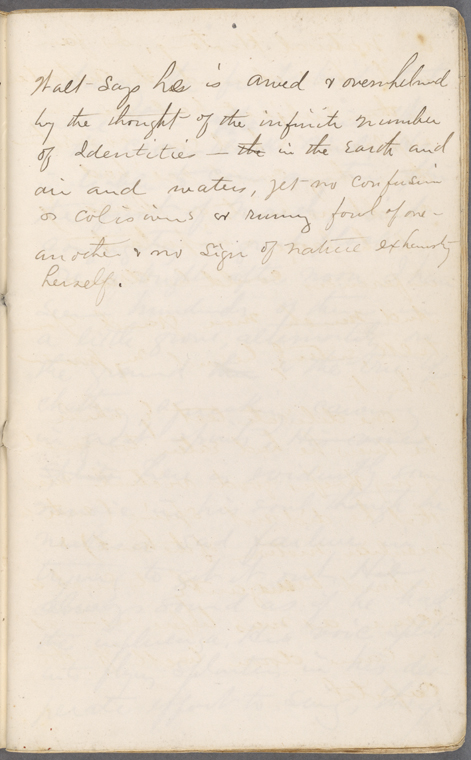 Walt says he is awed & overwhelmed
by the thought of the infinite number
of Identities — the in the Earth and
air and waters, yet no confusion
or colisions or runing foul of one-
another & no sign of nature exhausting
herself.